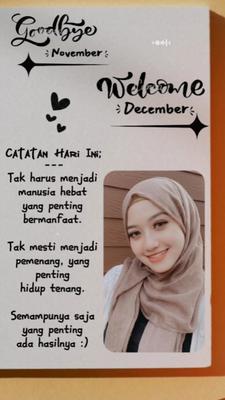 Goodbye
November
Welcome
December
CATATAN HARI INI;
Tak harus menjadi
manusia hebat
yang penting
bermanfaat.
Tak mesti menjadi
pemenang, yang
penting
hidup tenang.
Semampunya saja
yang penting
ada hasilnya :)